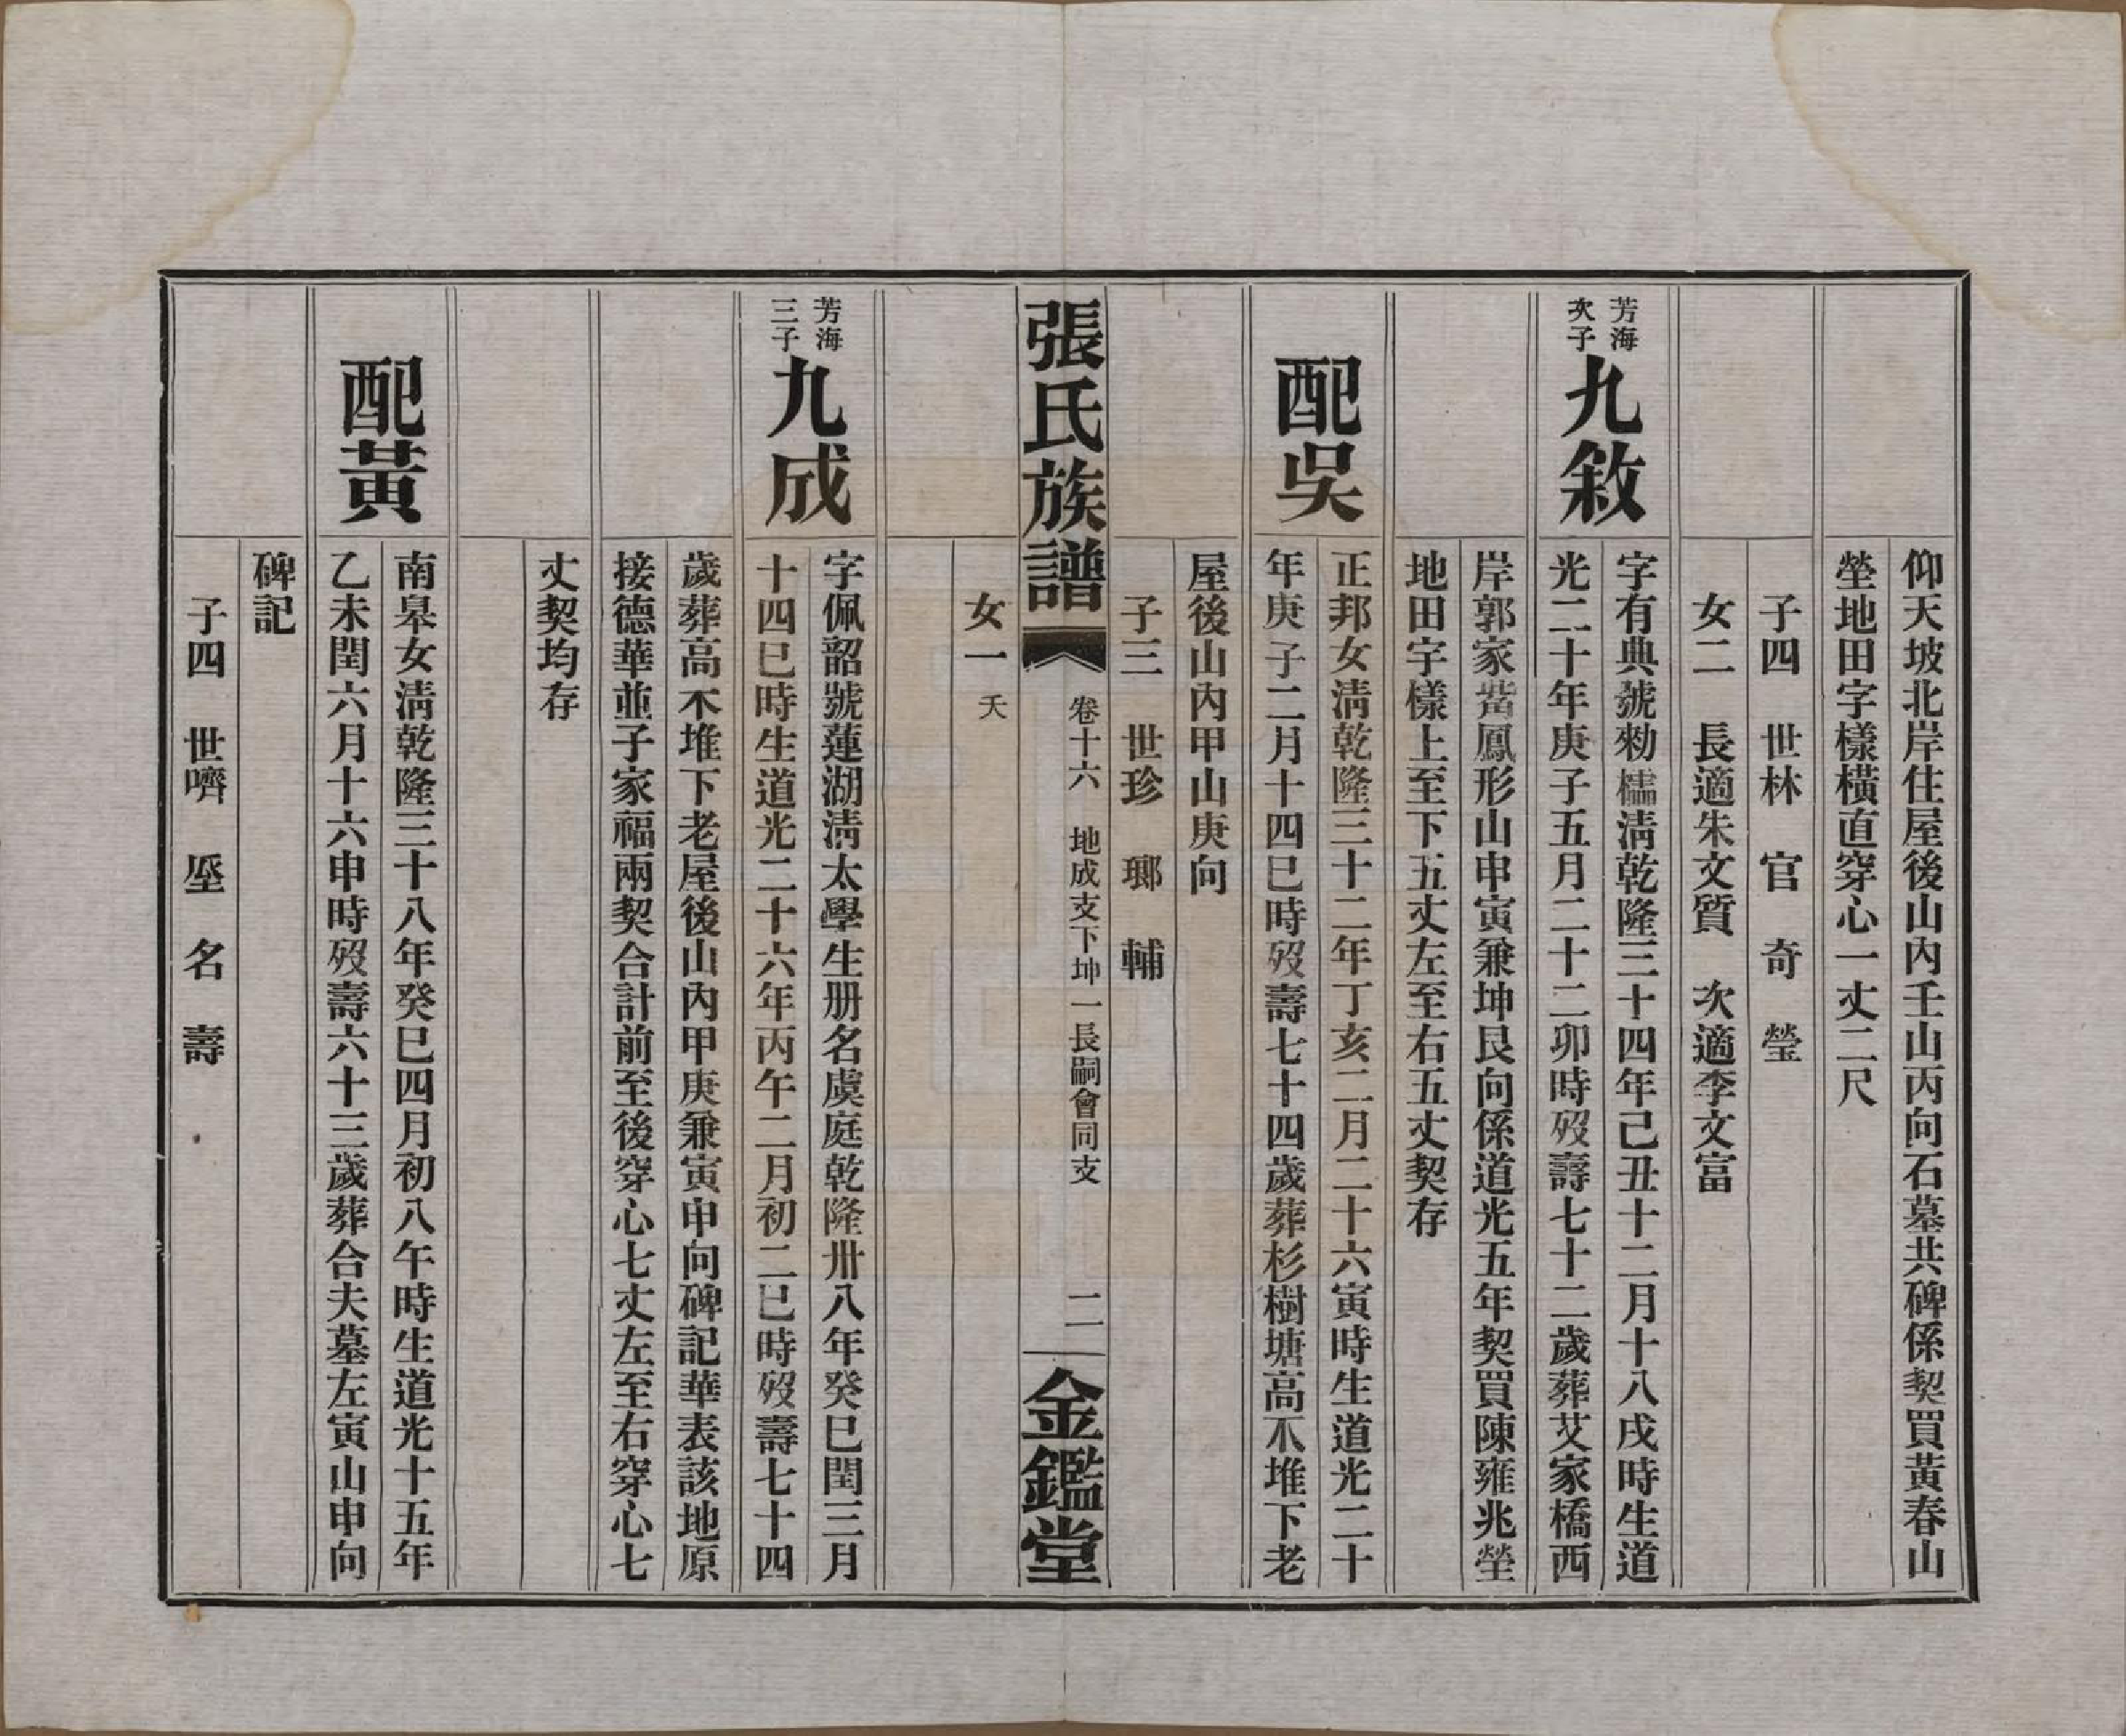 仰天坡北岸住屋後山內壬山丙向石墓共碑係契買黃春山
塋地田字樣橫直穿心一丈二尺
子四　世林　官　奇　瑩
女二　長適朱文質　次適李文富
芳海
次子
九敘
字有典號勑櫺清乾隆三十四年己丑十二月十八戌時生道
光二十年庚子五月二十二卯時歿壽七十二歲葬艾家橋西
岸郭家嘴鳳形山申寅兼坤艮向係道光五年契買陳雍兆塋
地田字樣上至下五丈左至右五丈契存
配吳
正邦女淸乾隆三十二年丁亥二月二十六寅時生道光二十
年庚子二月十四巳時歿壽七十四歲葬杉樹塘高不堆下老
屋後山內甲山庚向
子三　世珍　瑯　輔
張氏族譜
卷十六　地成支下坤一長嗣會同支
二
金鑑堂
女一　夭
芳海
三子
九成
字佩韶號蓮湖淸太學生册名虞庭乾隆卅八年癸巳閏三月
十四巳時生道光二十六年丙午二月初二巳時歿壽七十四
歲葬高不堆下老屋後山內甲庚兼寅申向碑記華表該地原
接德華並子家福兩契合計前至後穿心七丈左至右穿心七
丈契均存
配黃
南皋女淸乾隆三十八年癸巳四月初八午時生道光十五年
乙未閏六月十六申時歿壽六十三歲葬合夫墓左寅山申向
碑記
子四　世嚌　堊　名　壽